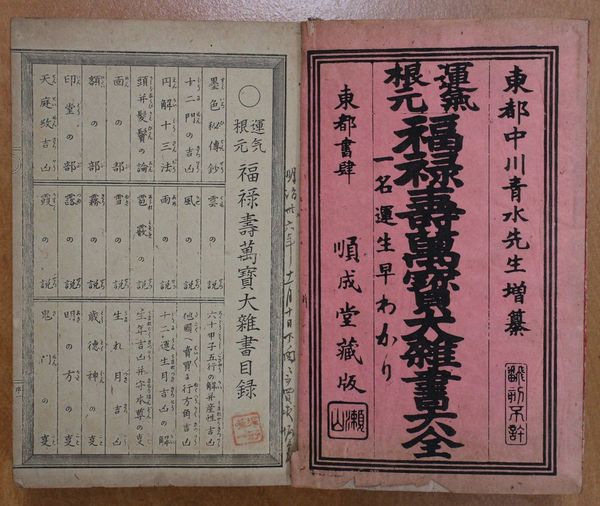 東都中川青水先生増纂
運氣
根元
福禄壽萬寳大雜書大全
一名運生早わかり
東都書肆
順成堂藏版
翻刻不許
瀬山
明治廿六年
運気
根元
福禄壽萬寳大雜書目録
墨色秘傳鈔
十二門の吉凶
円解十三法
頭并髪鬢の論
面の部
額の部
印堂の部
天庭数吉凶
雲の説
風の説
雨の説
雹霰の説
雪の説
霧の説
露の説
霞の説
六十甲子五行の解并産性吉凶
他國へ賣買に行方角吉凶
十二運生月吉凶の解
生年吉凶并守本尊の事
生れ月吉凶
歳徳神の事
明の方の事
鬼門の事